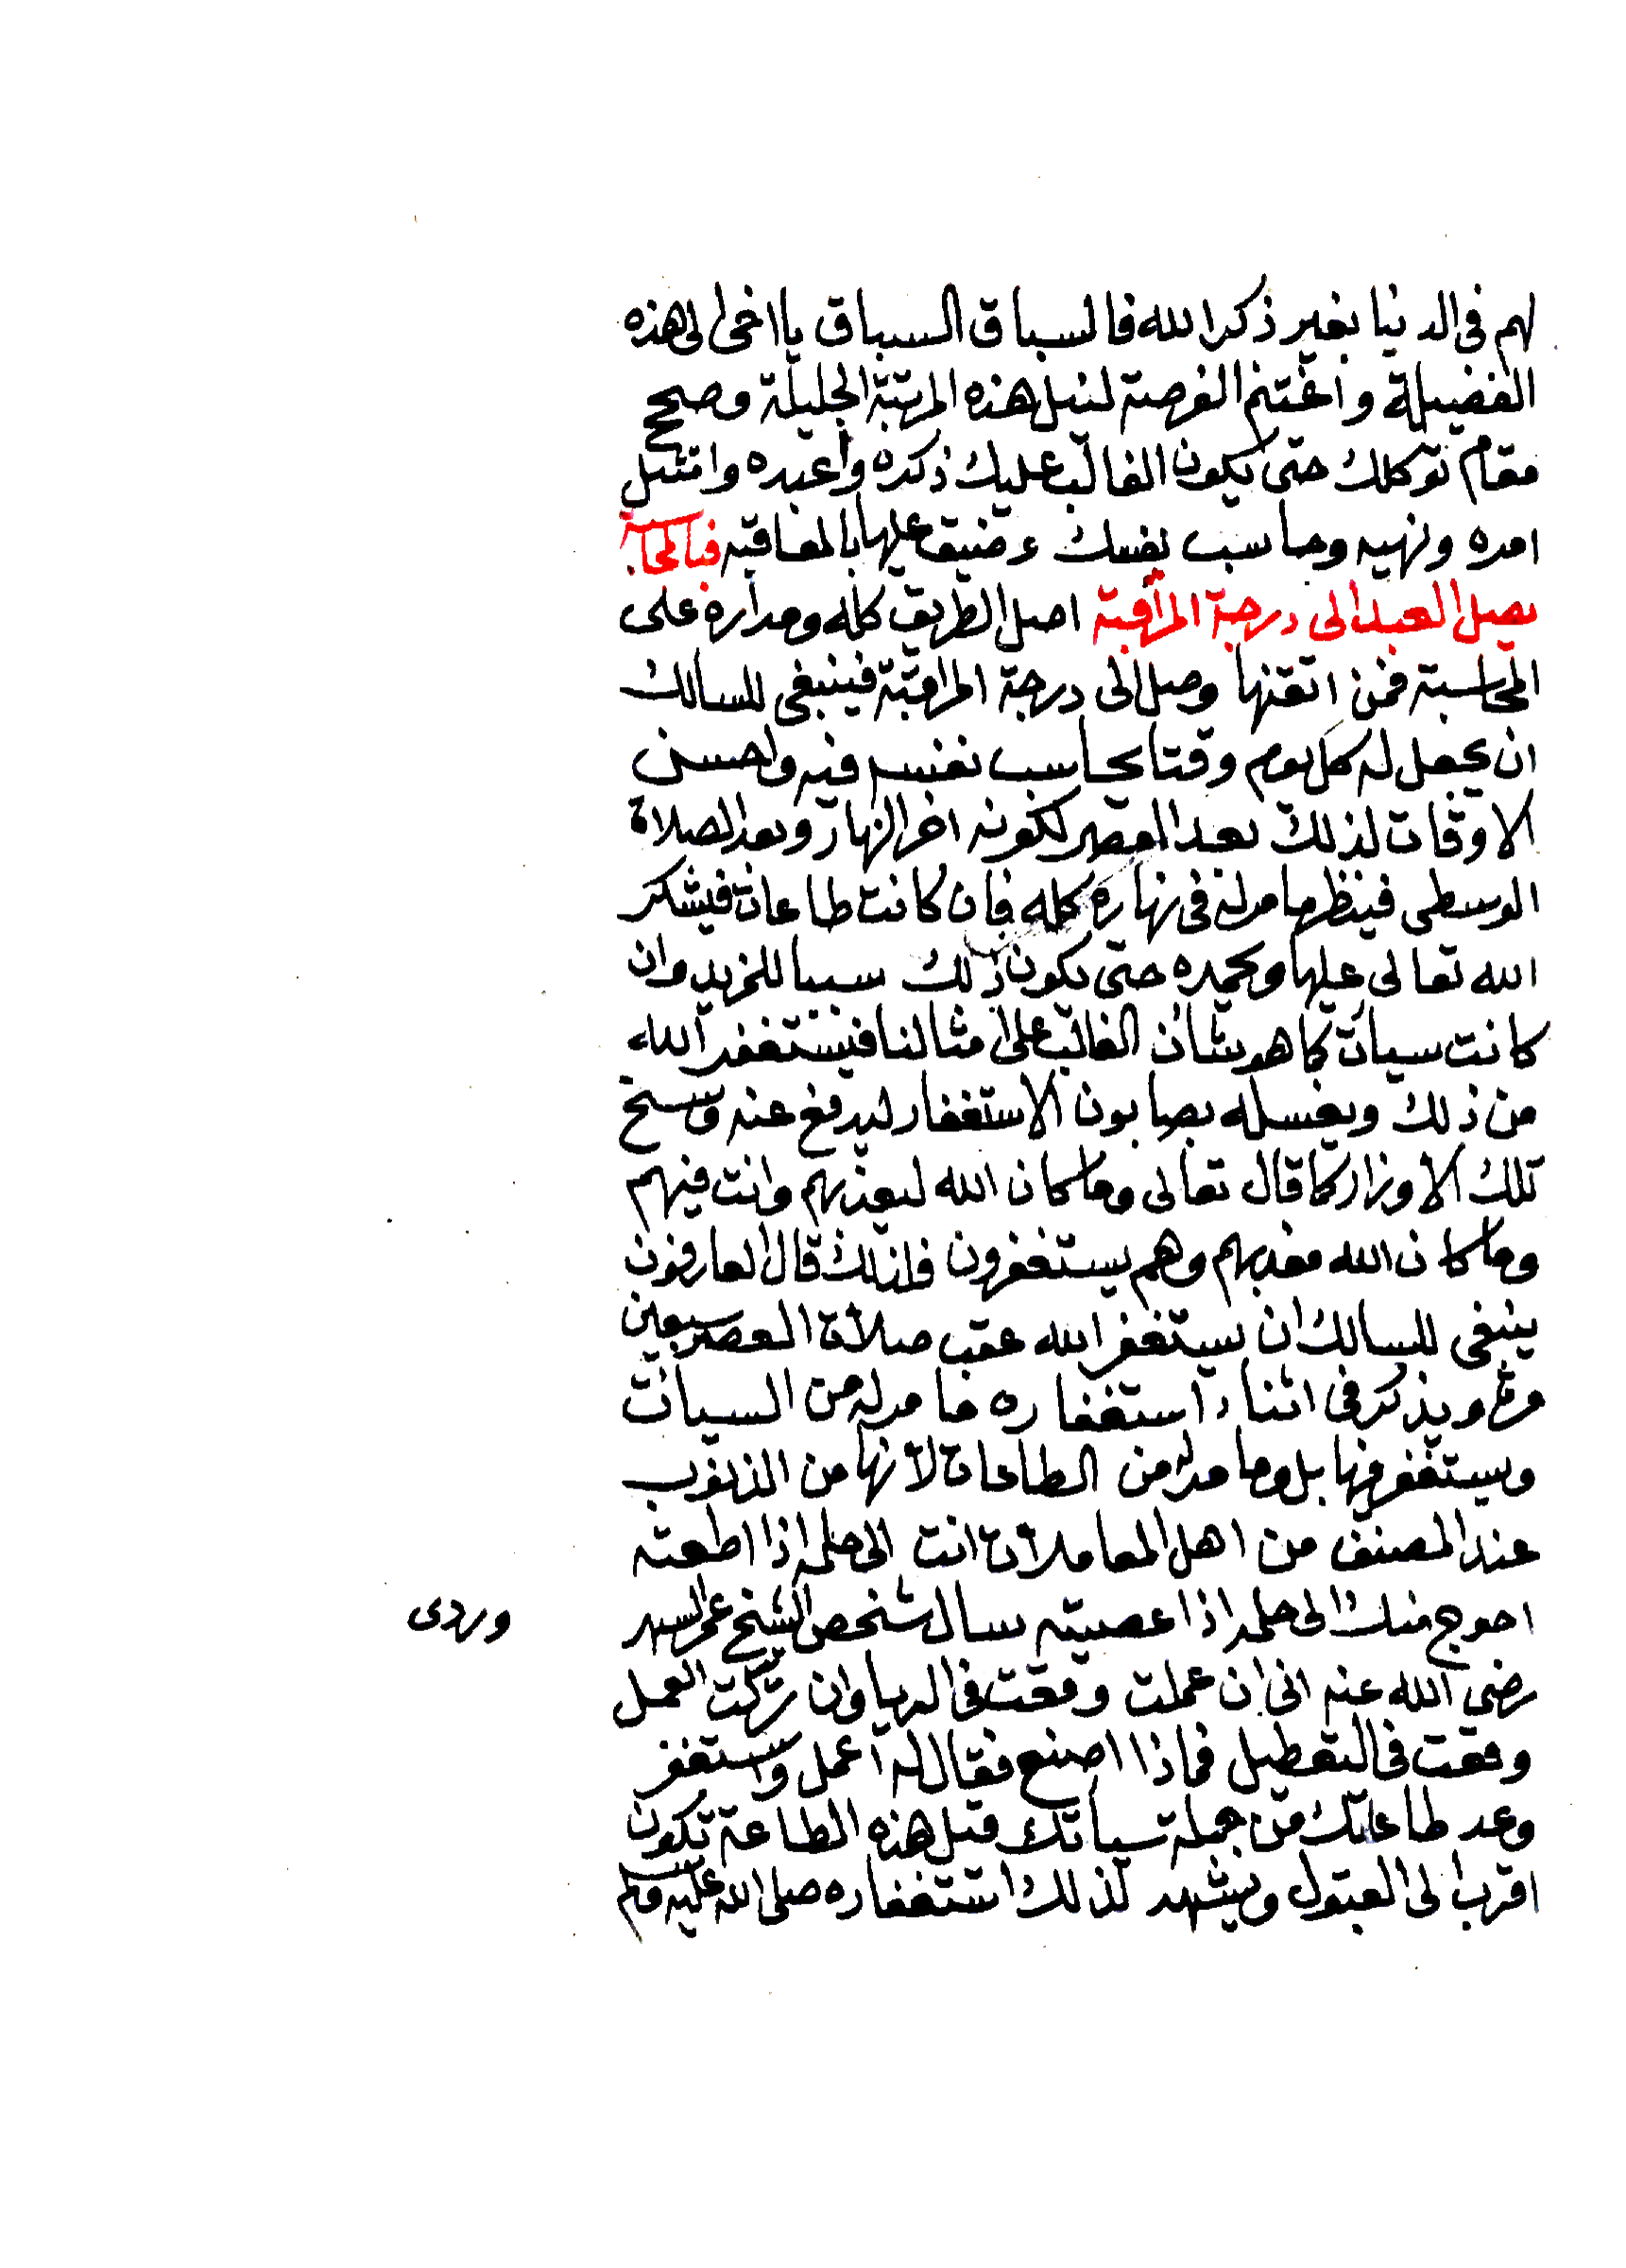 لهم فى الدنيا بغير ذكر الله فالسباق السباق يا اخى الى هذه
الفضيلة واغتنم الفرصة لنيل هذه المرتبة الجليلة وصحح
مقام توكلك حتى يكون الغالب عليك ذكره واعبده وامتثل
امره ونهيه وحاسب نفسك وضيق عليها بالمعاقبه فبالمحاسبة
يصل العبد الى درجة المراقبة اصل الطريق كله ومداره على
المحاسبة فمن اتقنها وصل الى درجة المراقبة فينبغى للسالك
ان يجعل له كل يوم وقتا يحاسب نفسه فيه واحسن
الاوقات لذلك بعد العصر لكونه اخر النهار وبعد الصلاة
الوسطى فينظر ما مر له فى نهاره كله فان كانت طاعات فيشكر
الله تعالى عليها ويحمده حتى يكون ذلك سببا للمزيد وان
كانت سيات كما هو شان الغالب على امثالنا فيستغفر الله
من ذلك ويغسله بصابون الاستغفار ليدفع عنه وسخ
تلك الاوزار كما قال تعالى وما كان الله ليعذبهم وانت فيهم
وما كان الله معذبهم وهم يستغفرون فلذلك قال العارفون
ينبغى للسالك ان يستغفر الله عقب صلاة العصر سبعين
مرة ويذكر فى اثناء استغفاره ما مر له من السيات
ويستغفر منها بل وما مر له من الطاعات لانها من الذنوب
عند المصنف من اهل المعاملات انت الى حلمه اذا اطعته
احوج منك الى حلمه اذا عصيته سال شخص الشيخ عمر السهر
وردى
رضى الله عنه انى ان عملت وقعت فى الريا وان تركت العمل
وقعت فى التعطيل فماذا اصنع فقال له اعمل واستغفر
وعد طاعاتك من جملة سياتك قبل هذه الطاعة تكون
اقرب الى القبول ويشهد لذلك استغفاره صلى الله عليه وسلم